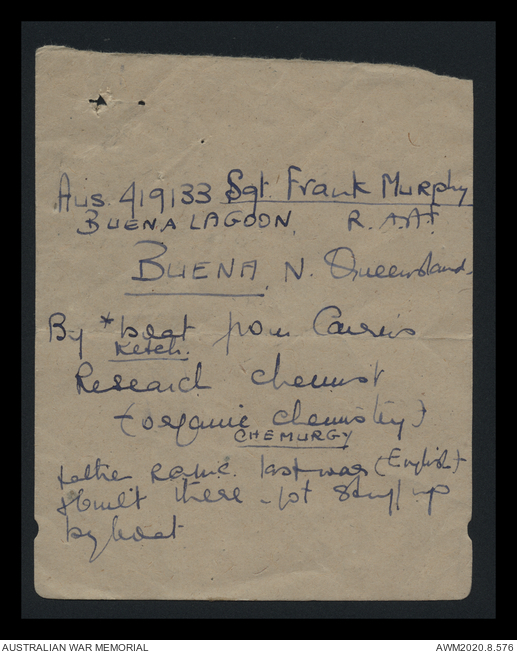 Aus. 419133 Sgt. Frank Murphy
BUENA LAGOON, R.A.A.F
BUENA, N. Queensland.
By *boat from Cairns
Ketch.
Research chemist
(organic chemistry)
CHEMURGY
Father came last war (English)
& built there - got stuff up
by boat
AUSTRALIAN WAR MEMORIAL
AWM2020.8.576